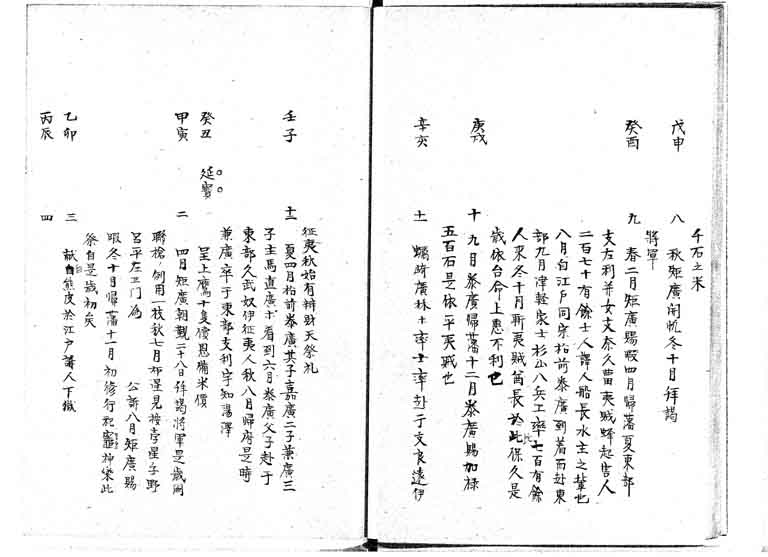 千石之米
戊申 八 秋矩廣開帆冬十月拜謁
將軍
癸酉 九 春二月矩廣賜暇四月歸藩夏東部
支左利並女支奈久留夷賊蜂起害人
二百七十有餘士人譯人船長水主之輩也
八月自江戶同宗柏前泰廣到著而赴東
部九月津輕家士杉山八兵工率七百有餘
人來冬十月斬夷賊酋長於此保久是
歲依台命上惠不利也
庚戌 十 九月泰廣歸藩十二月泰廣賜加祿
五百石是依平夷賊也
辛亥 十一 蠣崎廣林士率赴于文良遠伊
征夷秋始有辨財天祭礼
壬子 十二 夏四月柏前泰廣其子嘉廣二子兼廣三
子主馬直廣看到六月泰廣父子赴于
東部久武奴伊征夷人秋八月歸府是時
兼廣率于東部支利宇知陽澤
癸丑 延寶 呈上鷹十隻優恩備米價
甲寅 二 四月矩廣朝觀二十八日拜謁將軍是歲開
聯槍例用一枝秋七月布浬見接李星子野
呂平左工門為 公訴八月矩廣賜
暇冬十月歸藩十一月初修行祀竈神樂此
祭自是歲初矣
乙卯 三 献白熊皮於江戶
丙辰 四